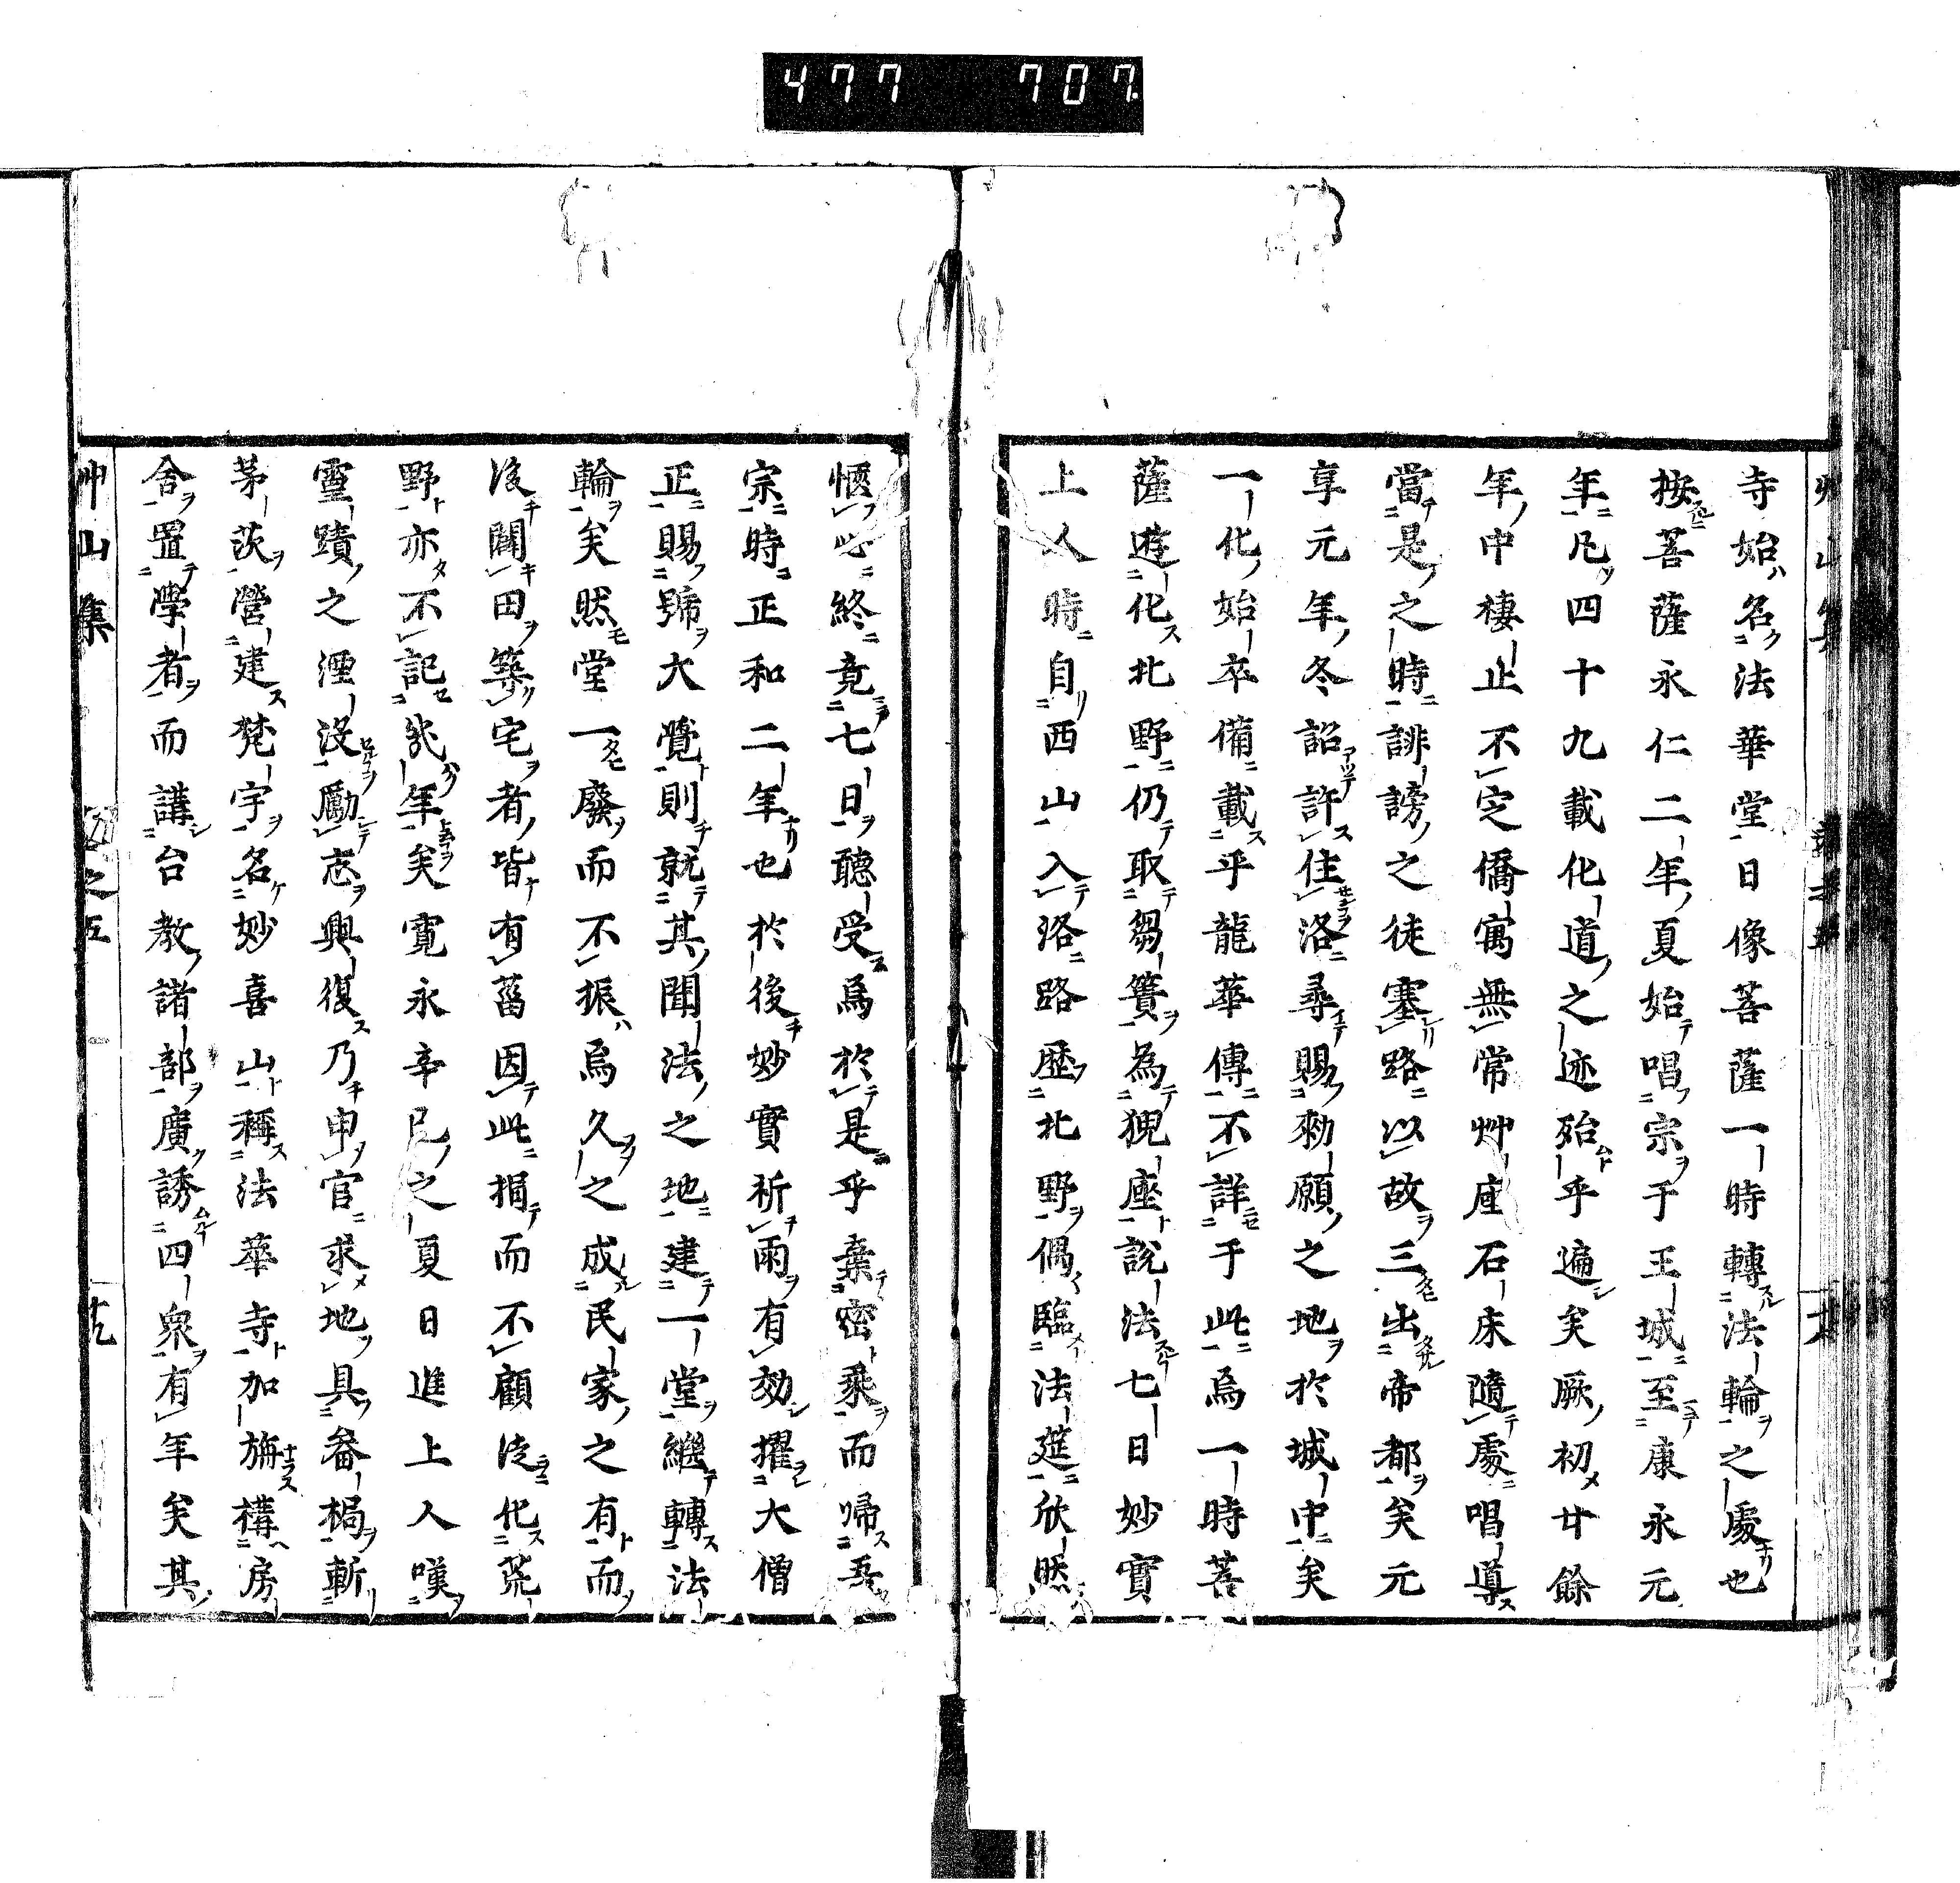 477 707
寺始名法華堂日像菩薩一時轉法輪之處也
按菩薩永仁二年夏始唱宗于王城至康永元
年凡四十九載化道之迹殆乎遍矣厥初廿餘
年中棲止不定僑寓無常艸庵石床隨處唱導
當是之時誹謗之徒塞路以故三出帝都矣元
享元年冬詔許住洛尋賜勑願之地於城中矣
一化始卒備載乎龍華傳不詳于此焉一時菩
薩遊化北野仍取蒭簣為猊座說法七日妙實
上人時自西山入洛路歷北野偶臨法莚欣然
愜心終竟七日聽受焉於是乎棄密乘而歸吾
宗時正和二年也於後妙實祈雨有効擢大僧
正賜號大覺則就其聞法之地建一堂繼轉法
輪矣然堂一廢而不振焉久之成民家之有而
後闢田築宅者皆有菑因此捐而不顧後化荒
野亦不記幾年矣寛永辛巳之夏日進上人嘆
靈蹟之湮沒勵志興復乃申官求地具畚梮斬
茅茨營建梵宇名妙喜山稱法華寺加旃構房
舍置學者而講台教諸部廣誘四衆有年矣其
艸山集 之五 廿九